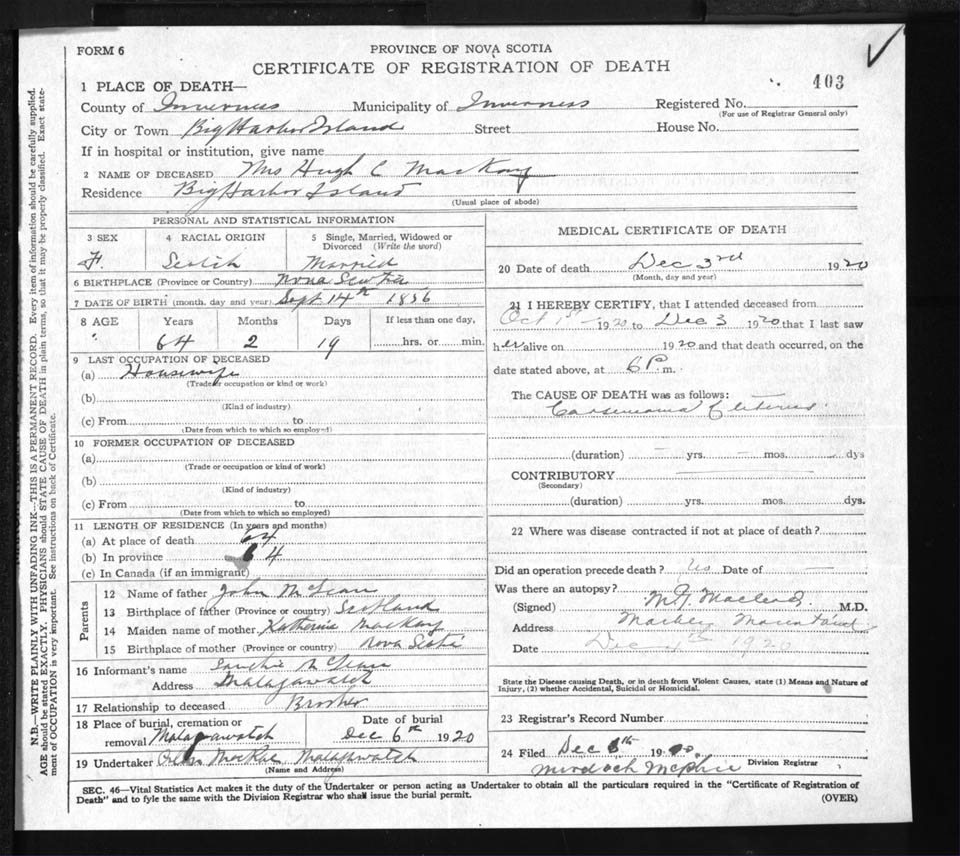 FORM 6
PROVINCE OF NOVA SCOTIA
CERTIFICATE OF REGISTRATION OF DEATH
403
1 PLACE OF DEATH—
County of Inverness Municipality of Inverness Registered No.
(For use of Registrar General only)
City or Town Big Harbor Island Street House No.
If in hospital or institution, give name
2 NAME OF DECEASED Mrs Hugh C MacKay
Residence Big Harbor Island
(Usual place of abode)
PERSONAL AND STATISTICAL INFORMATION
3 SEX 4 RACIAL ORIGIN 5 Single, Married, Widowed or Divorced (Write the word)
F. Scotch Married
6 BIRTHPLACE (Province or Country) Nova Scotia
7 DATE OF BIRTH (month, day and year) Sept 14th 1856
8 AGE Years Months Days If less than one day,
64 2 19 hrs. or min.
9 LAST OCCUPATION OF DECEASED
(a) Housewife
(Trade or occupation or kind or work)
(b)
(Kind of industry)
(c) From to
(Date from which to which so employed)
10 FORMER OCCUPATION OF DECEASED
(a)
(Trade or occupation or kind of work)
(b)
(Kind of industry)
(c) From to
(Date from which to which so employed)
11 LENGTH OF RESIDENCE (In years and months)
(a) At place of death 64
(b) In province 64
(c) In Canada (if an immigrant)
Parents
12 Name of father John McLean
13 Birthplace of father (Province or country) Scotland
14 Maiden name of mother Katherine MacKay
15 Birthplace of mother (Province or country) Nova Scotia
16 Informant's name McLean
Address Malagawatch
17 Relationship to deceased Brother
18 Place of burial, cremation or removal Malagawatch Date of burial Dec 6th 1920
19 Undertaker MacRae Malagawatch
(Name and Address)
MEDICAL CERTIFICATE OF DEATH
20 Date of death Dec 3rd 1920
(Month, day and year)
21 I HEREBY CERTIFY, that I attended deceased from
Oct 1st 1920 to Dec 3 1920 that I last saw
her alive on 1920 and that death occurred, on the
date stated above, at 6 P. m.
The CAUSE OF DEATH was as follows:
Carsenoma of uterus
(duration) — yrs. — mos. dys
CONTRIBUTORY
(Secondary)
(duration) yrs. mos. dys.
22 Where was disease contracted if not at place of death?
Did an operation precede death? No Date of —
Was there an autopsy?
(Signed) Macleod M.D.
Address Marble Mountain
Date Dec 4th 1920
State the Disease causing Death, or in death from Violent Causes, state (1) Means and Nature of
Injury, (2) whether Accidental, Suicidal or Homicidal.
23 Registrar's Record Number
24 Filed Dec 1920
Murdoch McPhie Division Registrar
SEC. 46—Vital Statistics Act makes it the duty of the Undertaker or person acting as Undertaker to obtain all the particulars required in the "Certificate of Registration of
Death" and to fyle the same with the Division Registrar who shall issue the burial permit.
(OVER)
N.B.—WRITE PLAINLY WITH UNFADING INK—THIS IS A PERMANENT RECORD. Every item of information should be carefully supplied.
AGE should be stated EXACTLY. PHYSICIANS should STATE CAUSE OF DEATH in plain terms, so that it may be properly classified. Exact state-
ment of OCCUPATION is very important. See instructions on back of Certificate.